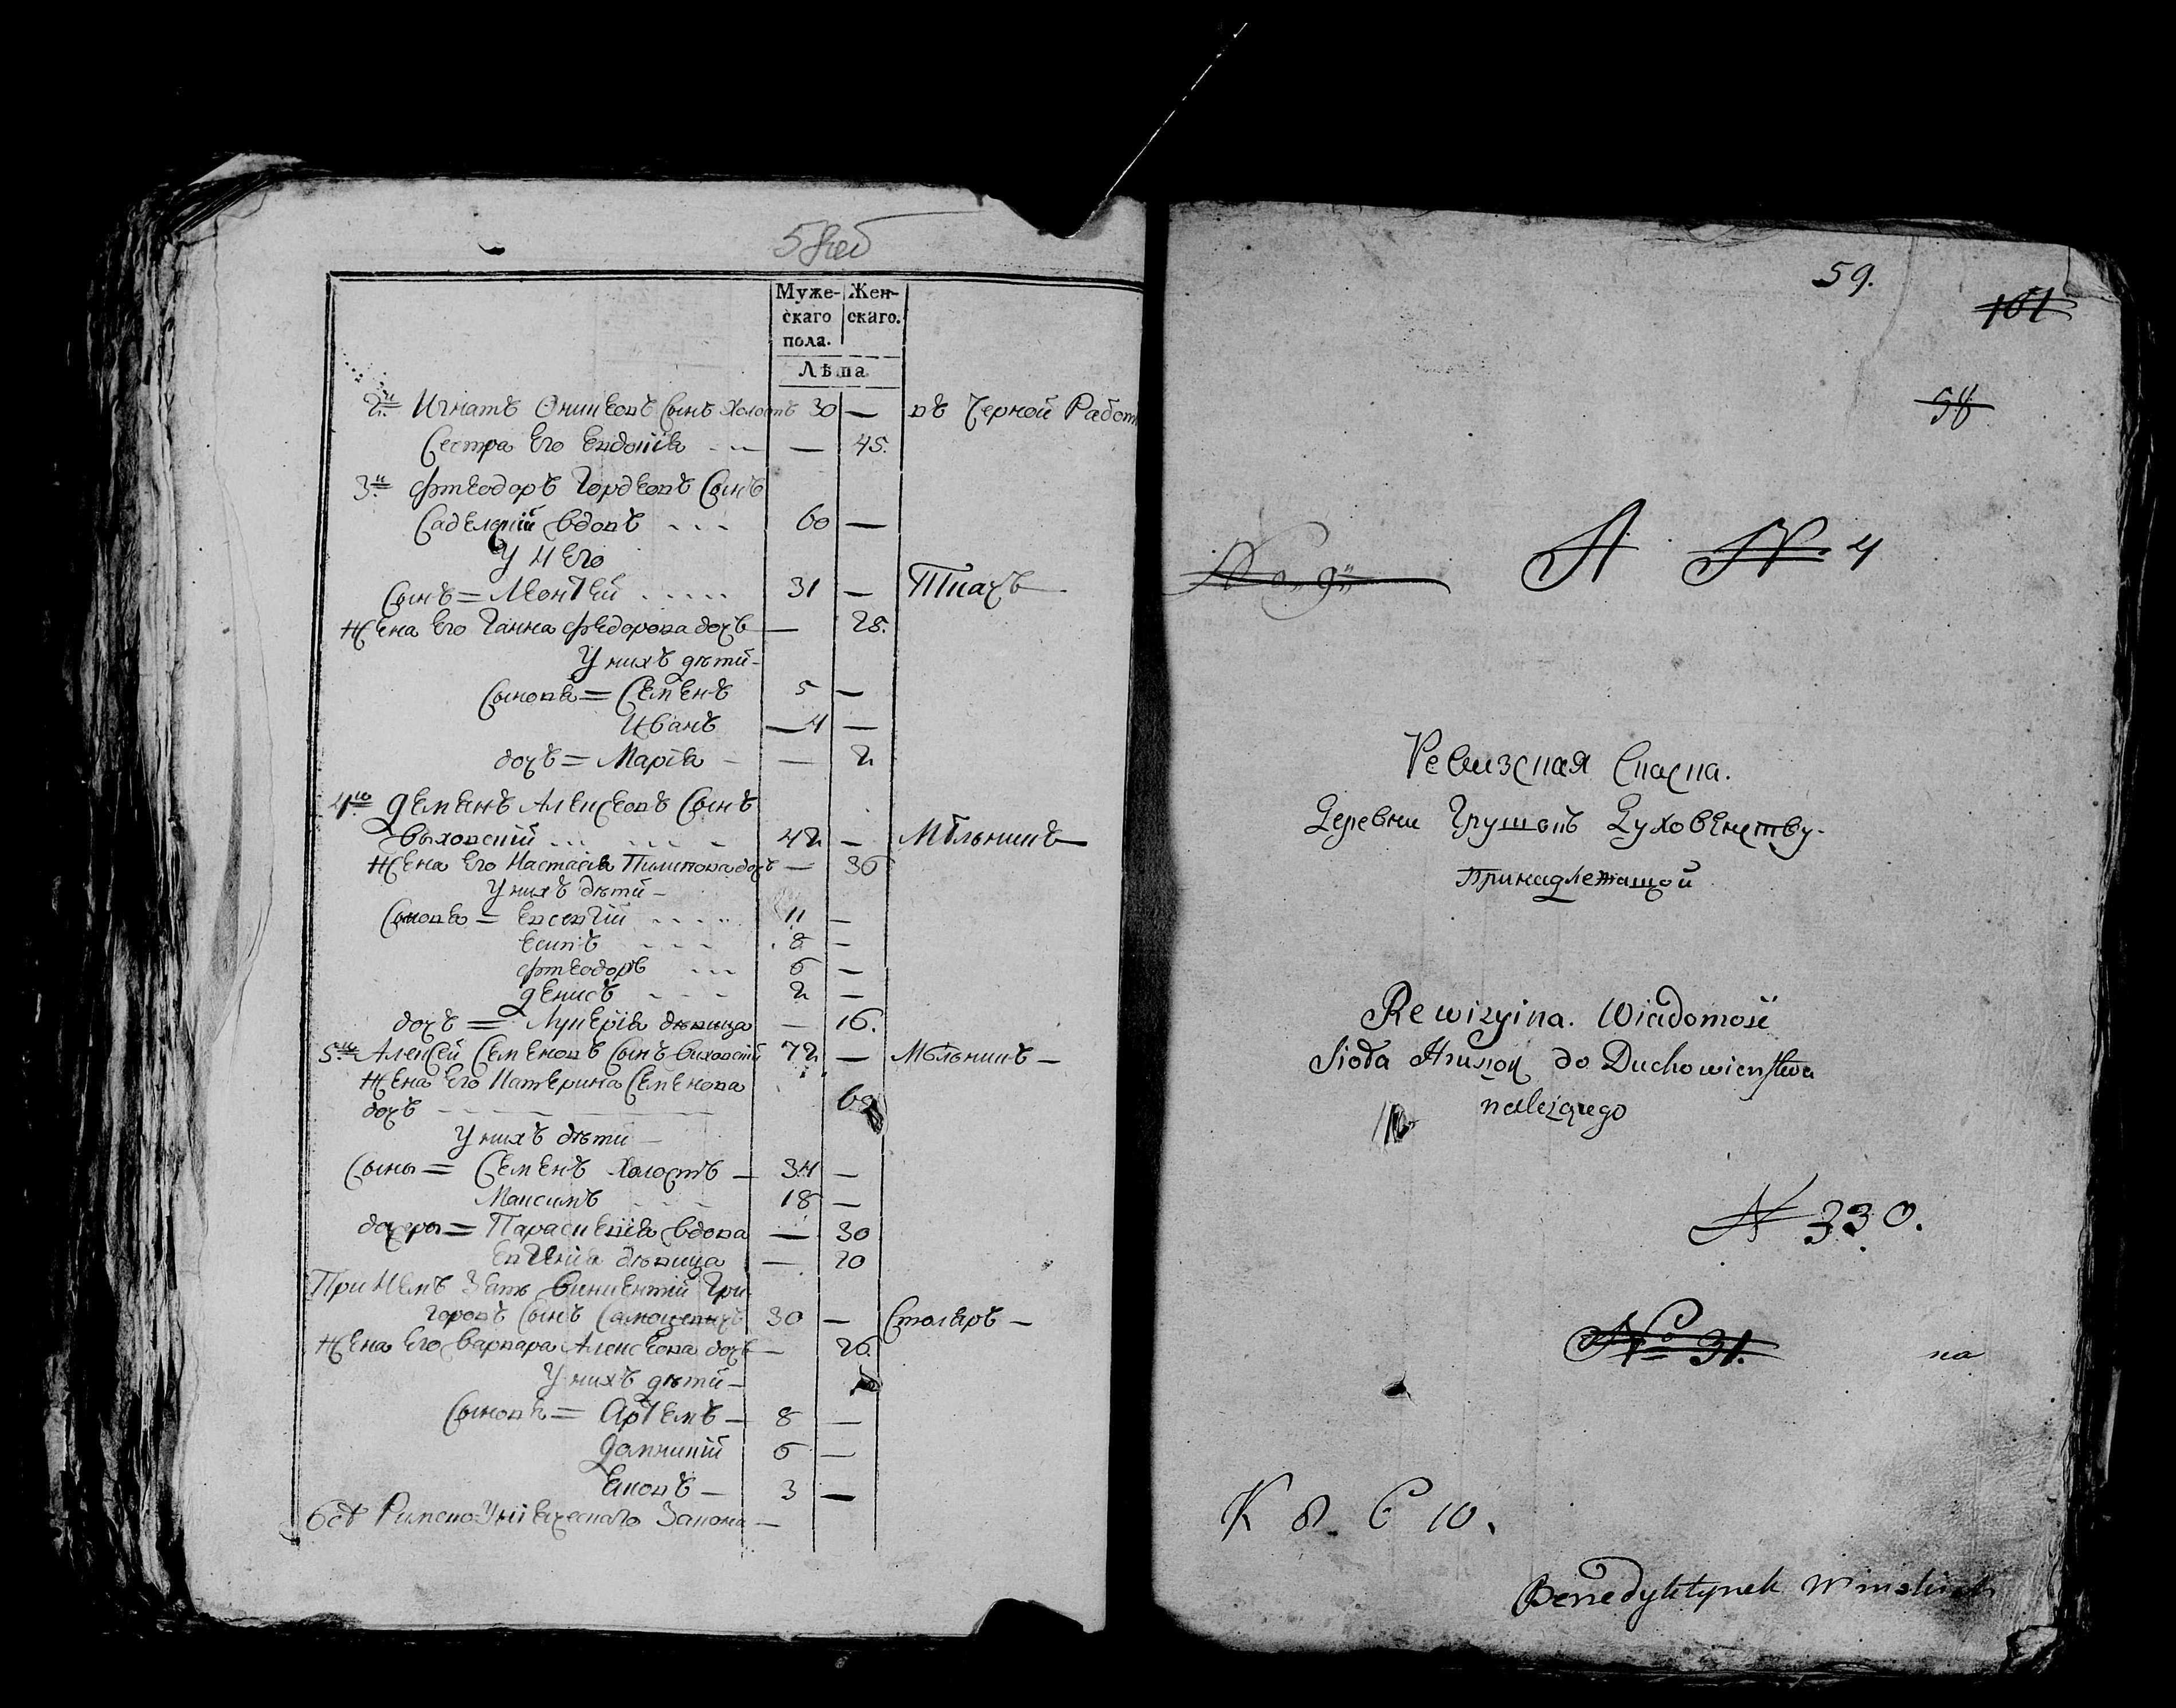 58 об
Муже-
скаго
пола.
Жен-
скаго.
Лѣта
2й Игнатъ Ониковъ Сынъ Холостъ 30 — въ Черной Работ
Сестра Его Евдокія — 45.
3й Фтеодоръ Гордеовъ Сынъ
вдовъ 60 —
У Него
Сынъ = Монтей 31 — Ткачъ
Жена Его Ганна Федорова дочъ — 28.
У нихъ дѣти
Сыновя = Семенъ 5 —
Иванъ — 4 —
дочъ = Марія — 2
4й Деменъ Алексеовъ Сынъ
Выховскій 42 — Мѣльникъ
Жена Его Настасія Пилипова дочъ — 36
У нихъ дѣти
Сыновя = Евсевгій 11 —
Есипъ 8 —
Фтеодоръ 6 —
Денисъ 2 —
дочъ = Лукерія дѣвица — 16.
5й Алексей Семеновъ Сынъ Виховскій 72 — Мѣльникъ —
Жена Его Катерина Семенова
дочъ 60
У нихъ дѣти
Сыны = Семенъ Холостъ 34 —
Максимъ 18 —
дочеры = Параскевія вдова — 30
Евгенія дѣвица — 20
При Немъ Зять Викентій Гри-
горовъ Сынъ 30 — Столяръ —
Жена Его Варвара Алексеова дочъ — 26
У нихъ дѣти
Сыновя = Артемъ 8 —
Доминикій 6 —
Еиовъ — 3 —
Римско Унієческаго Закона —
59.
101
98
А № 4
Ревизская Скаска.
Деревни Грушокъ Духовенству
Принадлежащой
Rewizyina. Wiadomość
Sioła Hruszok do Duchowieństwa
należącego
N 330.
№ 31.
na
К 8. С 10.
Benedyktynek Winskich